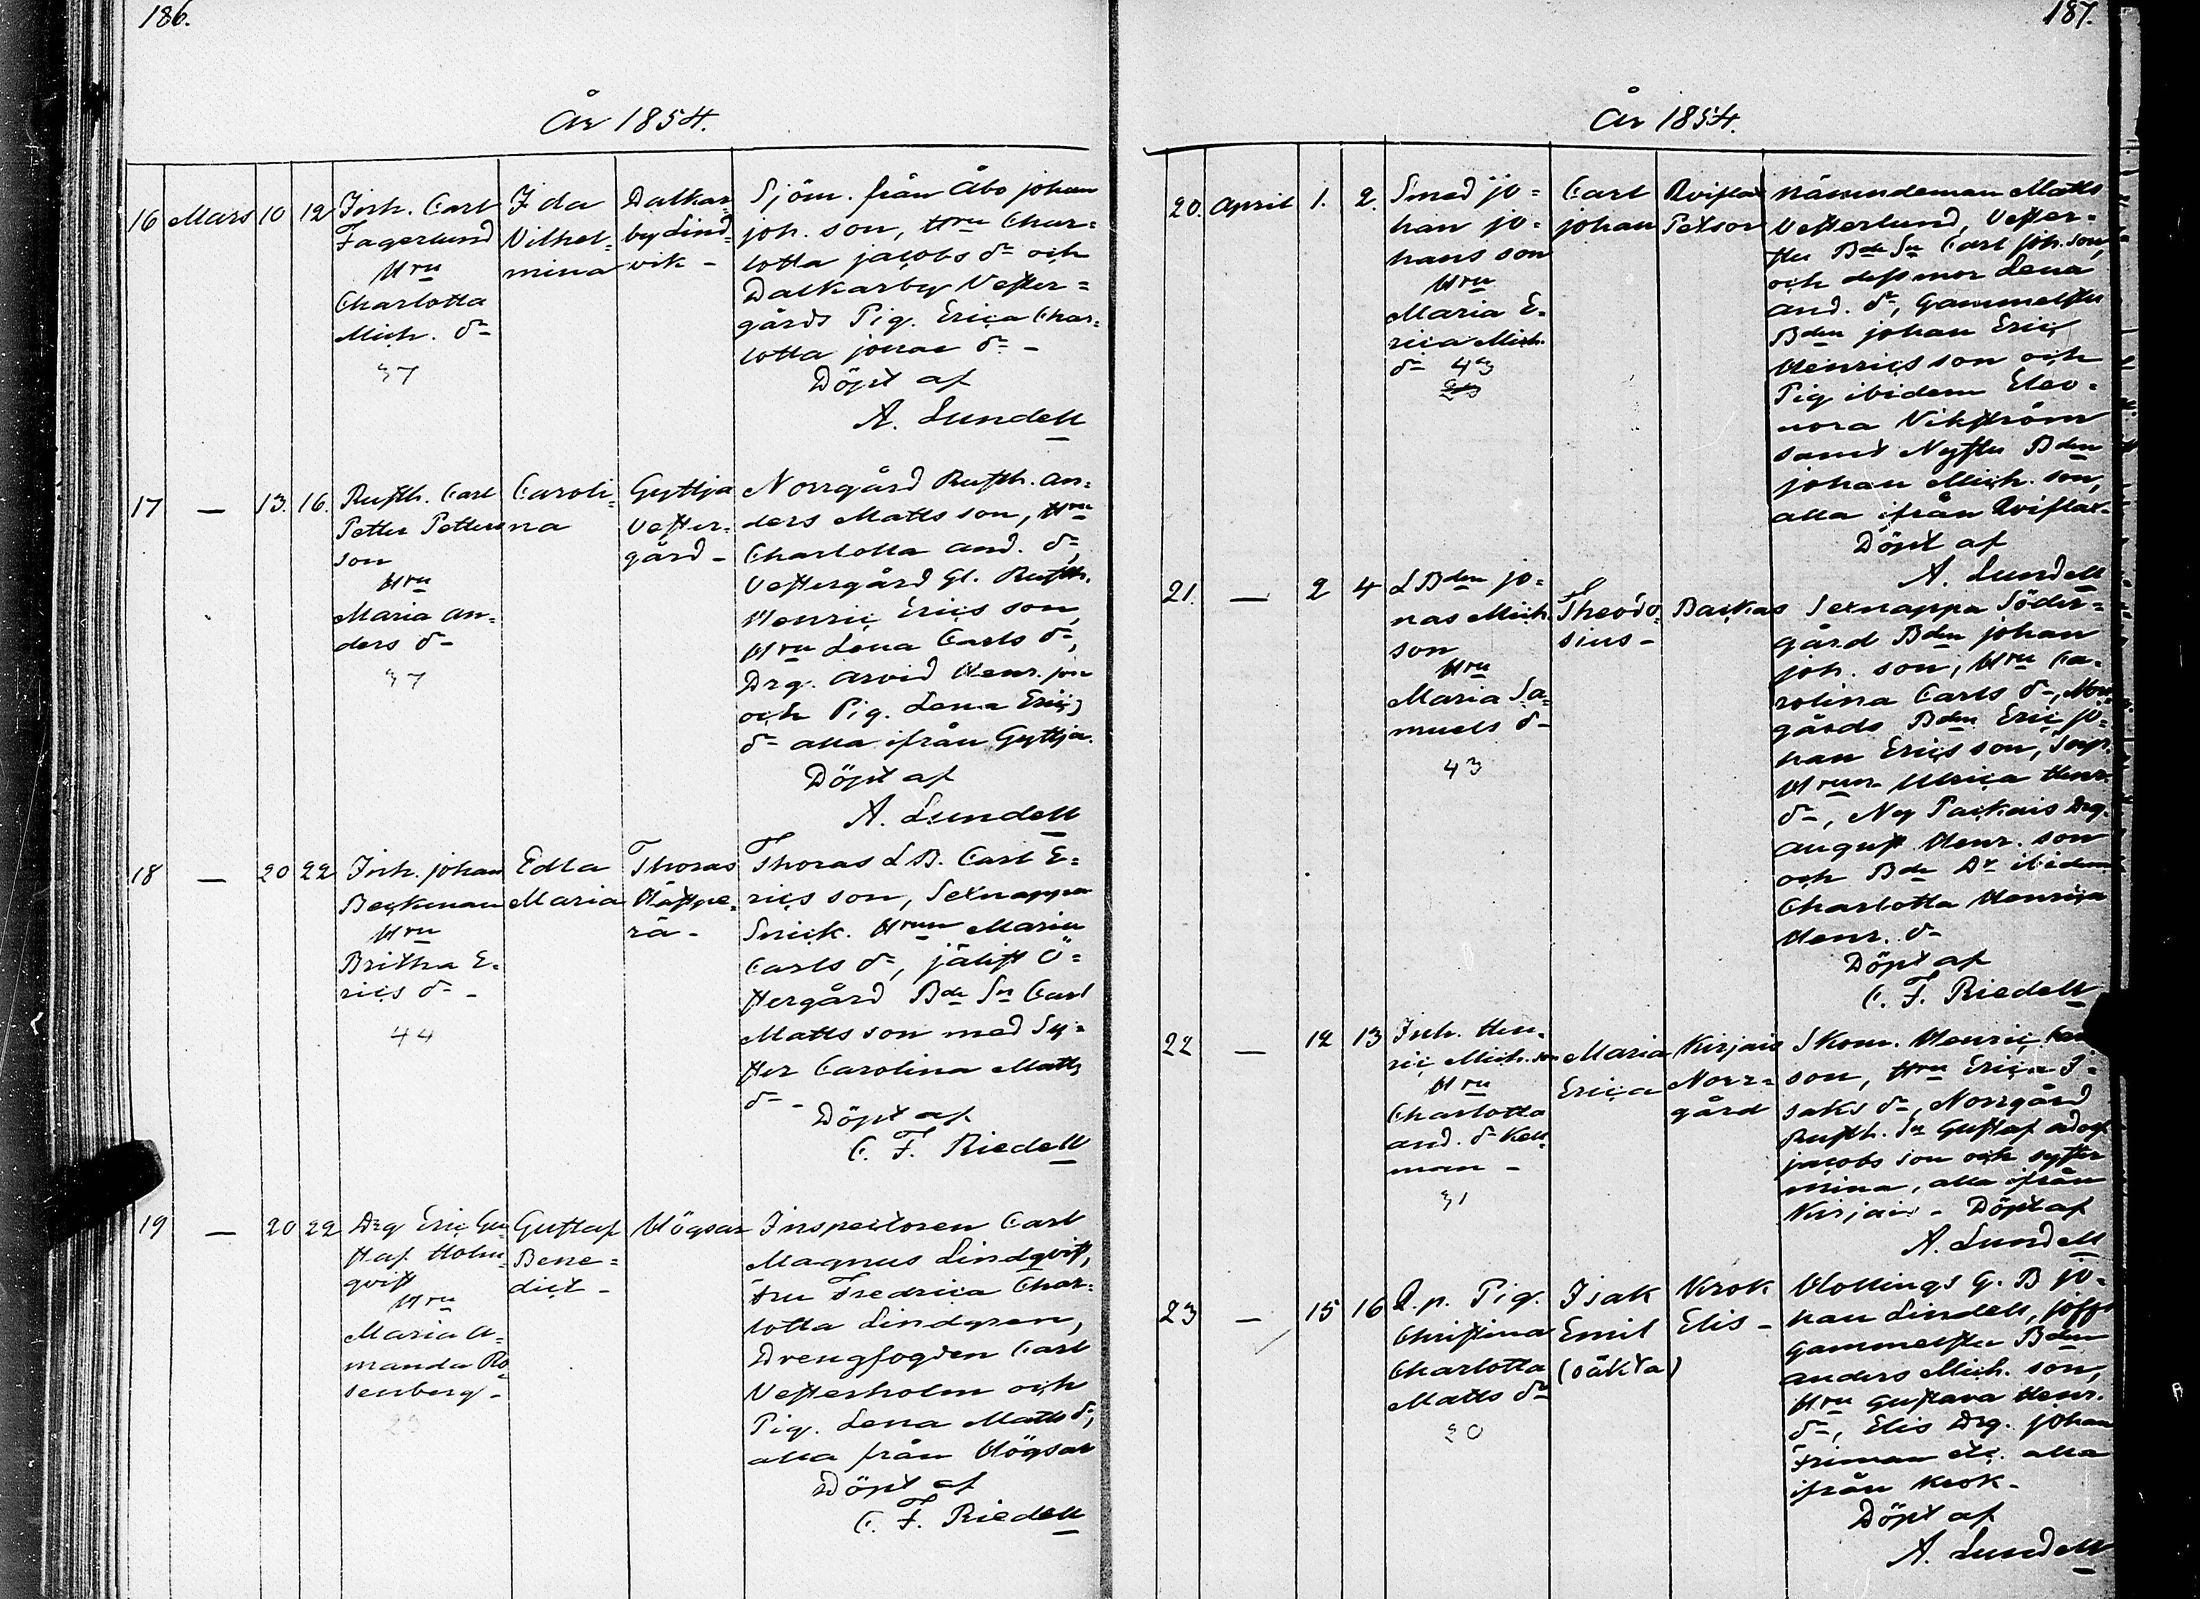 186.
År 1854.
16 Mars 10 12 Inh. Carl Fagerlund Hru Charlotta Mich. dr 37
Ida Vilhel=
mina
Dalkar=
by Lind=
vik -
Sjöm. från Åbo johan
joh. son, Hru Char=
lotta jacobs dr och
Dalkarby Vester=
gårds Pig. Erica Char=
lotta jonae dr -
Döpt af
A. Lundell
17 — 13. 16. Rusth. Carl
Petter Petters
son
Hru
Maria An=
ders dr
37
Caroli=
na
Gyttja
Vester=
gård -
Norrgård Rusth. An=
ders Matts son, Hru
Charlotta And. dr,
Vestergård Gl. Rusth.
Henric Erics son,
Hru Lena Carls dr,
Drg. Arvid Henr. son
och Pig. Lena Erics
dr alla ifrån Gyttja.
Döpt af
A. Lundell
18 — 20 22 Inh. johan
Beckman
Hru
Britha E=
rics dr -
44
Edla
Maria
Thoras
rä -
Thoras L.B. Carl E=
rics son, Sexnappa
Snick. Hrun Maria
Carls dr, jälist Ö=
stergård Bde Sn Carl
Matts son med Sy=
ster Carolina Matts
dr -
Döpt af
C. F. Riedell
19 — 20 22 Drg Eric Gu
staf Holm=
qvist
Hru
Maria A=
manda Ro=
senberg -
23
Gustaf
Bene=
dict -
Högsar
Inspectoren Carl
Magnus Lindqvist,
fru Fredrica Char=
lotta Lindgren,
Drengfogden Carl
Vesterholm och
Pig. Lena Matts dr,
alla från Högsar
Döpt af
C. F. Riedell
187.
År 1854.
20. April 1. 2. Smed jo=
han jo=
hans son
Hru
Maria E=
rica Mich.
dr 43
Carl
johan
Qviflax
Petsor
Nämndeman Matts
Vesterlund, Vester=
Bde Sn Carl joh. son,
och dess mor Lena
And. dr, Gammelstu
Bden johan Eric
Henrics son och
Pig ibidem Eleo=
nora Vikström
samt Nystu Bden
johan Mich. son,
alla ifrån Qviflax
Döpt af
A. Lundell
21. — 2 4 L Bden jo=
nas Mich.
son
Hru
Maria Sa=
muels dr
43
Theodo=
sius -
Backas
Sexnappa Söder=
gård Bden johan
joh. son, Hru Ca=
rolina Carls dr, Norr
gårds Bden Eric jo=
han Erics son,
Hrun Ulrica Henr.
dr, Ny Packais Drg.
August Henr. son
och Bde Dr ibidem
Charlotta Henrica
Henr. dr
Döpt af
C. F. Riedell
22 — 12 13 Inh. Hen=
ric Mich. son
Hru
Charlotta
And. dr Kell=
man -
31
Maria
Erica
Kirjais
Norr=
gård
Skom. Henric
son, Hru Erica I=
saks dr, Norrgård
Rusth. Sn Gustaf Adolf
jacobs son och syster
Mina, alla ifrån
Kirjais - Döpt af
A. Lundell
23 — 15 16 Q. p. Pig.
Christina
Charlotta
Matts dr
20
Isak
Emil
(oäkta)
Krok
Elis -
Hollings G. B jo=
han Lindell,
Gammelstu Bden
Anders Mich. son,
Hru Gustava Henr.
dr, Elis Drg. johan
Friman etc. alla
ifrån Krok -
Döpt af
A. Lundell